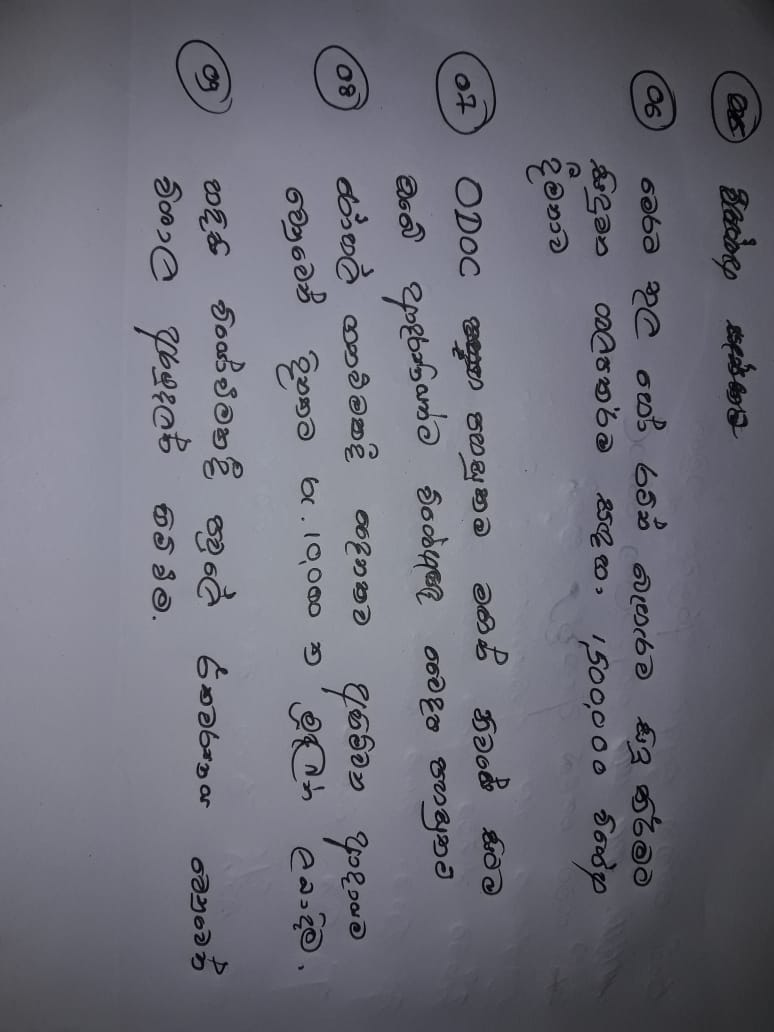 05
06 මෙරට තුල හෝ රටින් බැහැරව සිදු කිරීමට
සිදුවන ශල්‍යකර්ම සඳහා 1,500,000 විශේෂ
දීමනාව
07 ODOC පහසුකම මඟින් නිවසේ සිටම
ඔබේ ආදරණීයන්ට විශේෂඥ වෛද්‍ය පහසුකම්
08 රෝහල් ගතවීමකදී දෛනිකව අහිමිවන ආදායම
වෙනුවෙන් දිනකට රු. 10,000 ක මුදලක් ලබාදීම.
09 හදිසි වියෝවීමකදී පවුලේ රැකවරණය වෙනුවෙන්
විශාල අරමුදලක් හිමි වීම.